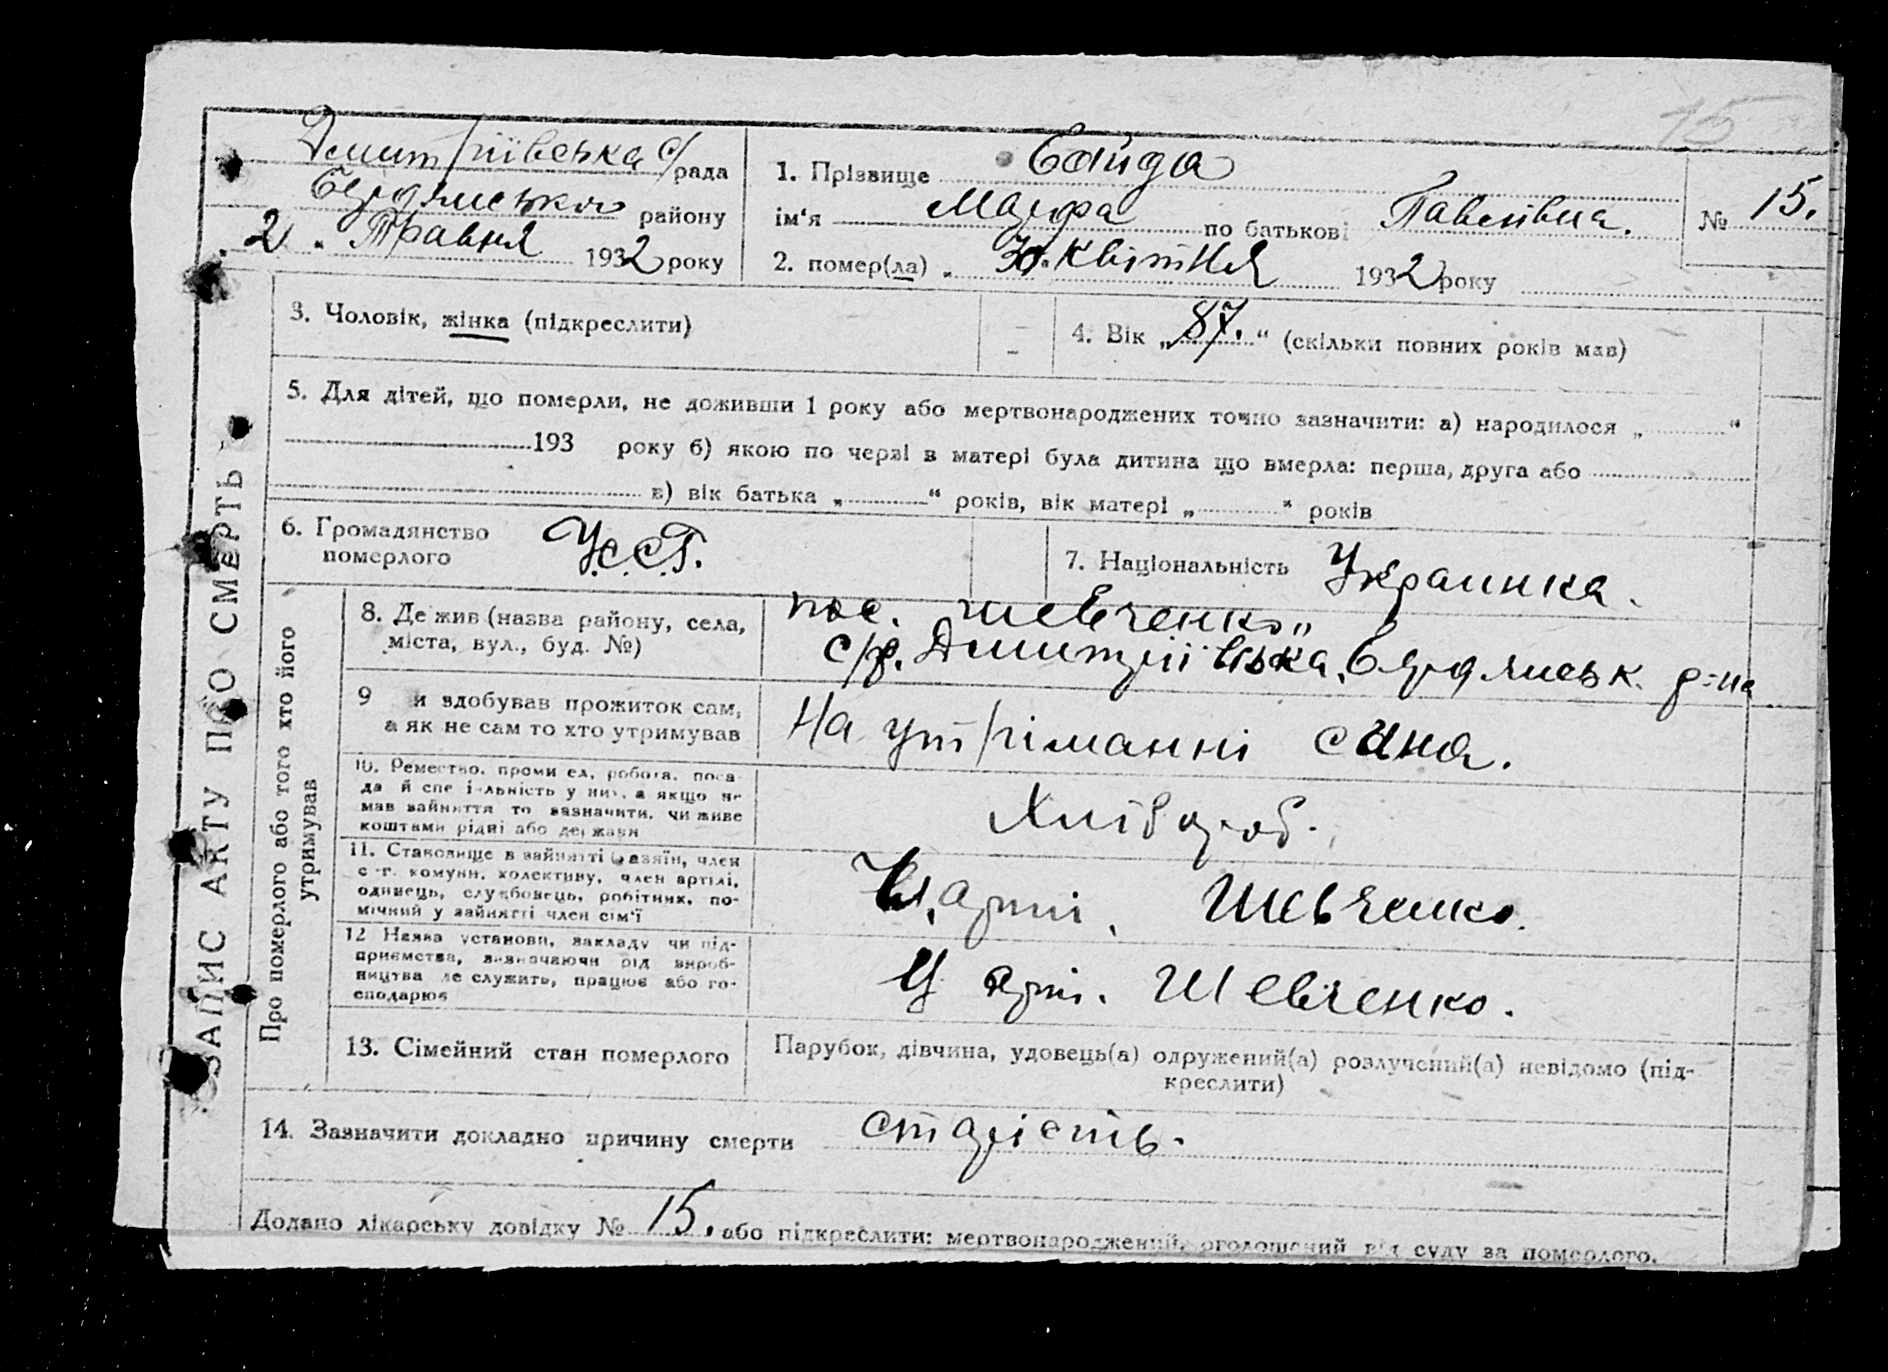 15
Дмитріївська с/рада
Бердянська району
„2„ Травня 1932 року
1. Прізвище Байда
ім‘я Марфа по батькові Павлівна.
2. помер(ла) „30“ Квітня 1932 року
№ 15.
3. Чоловік, жінка (підкреслити)
4. Вік „87.“ (скільки повних років мав)
5. Для дітей, що померли, не доживши 1 року або мертвонароджених точно зазначити: а) народилося „ “
193 року б) якою по черзі в матері була дитина що вмерла: перша, друга або
в) вік батька „ “ років, вік матері „ “ років
6. Громадянство
померлого
У.С.С.Р.
7. Національність Украинка.
ЗАПИС АКТУ ПРО СМЕРТЬ
Про померлого або того хто його
утримував
8. Де жив (назва району, села,
міста, вул., буд. №)
пос. Шевченко„
с/р. Дмитріівська, Бердянськ. р-на
9 и здобував прожиток сам,
а як не сам то хто утримував
На утріманні сина.
10. Ремество, проми ел, робота, поса-
да й спе і-льність у них, а якщо не
мав зайняття то зазначити, чи живе
коштами рідні або держави
Хлібороб.
11. Становище в зайнятті (хазяїн, член
с.-г. комуни, колективу, член артілі,
одинець, службовець, робітник, по-
мічний у зайнятті член сім‘ї
Чл. арті. Шевченко.
12 Назва установи, закладу чи під-
приємства, визначаючи рід вироб-
ництва де служить, працює або го-
сподарює
У арт. Шевченко.
13. Сімейний стан померлого
Парубок, дівчина, удовець(а) одружений(а) розлучений(а) невідомо (під-
креслити)
14. Зазначити докладно причину смерти старість.
Додано лікарську довідку № 15. або підкреслити: мертвонароджений, оголошений від суду за померлого.